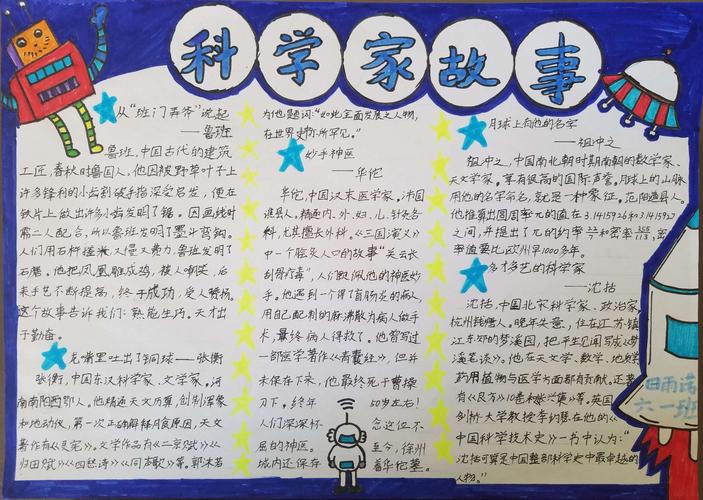 科学家故事
从“班门弄斧”说起
——鲁班
鲁班，中国古代的建筑
工匠，春秋时鲁国人，他因被野草叶子上
许多锋利的小齿割破手指深受启发，便在
铁片上做出许多小齿发明了锯。因画线时
需二人配合，所以鲁班发明了墨斗弯钩。
人们用石杵捶米又慢又费力，鲁班发明了
石磨。他把凤凰雕成鸡，被人嘲笑，后
来手艺不断提高，终于成功，受人赞扬。
这个故事告诉我们：熟能生巧。天才出
于勤奋。
龙嘴里吐出了铜球——张衡
张衡，中国东汉科学家、文学家。河
南南阳西鄂人。他精通天文历算，创制浑象
和地动仪，第一次正确解释月食原因，天文
著作有《灵宪》。文学作品有《二京赋》《
归田赋》《四愁诗》《同声歌》等。郭沫若
为他题词：“如此全面发展之人物，
在世界史亦所罕见。”
妙手神医
——华佗
华佗，中国汉末医学家。沛国
谯县人。精通内、外、妇、儿、针灸各
科，尤其擅长外科。《三国演义》
中一个脍炙人口的故事“关云长
刮骨疗毒”，人们钦佩他的神医妙
手。他遇到一个得了盲肠炎的病人，
用自己配制的麻沸散为病人做手
术，最终病人得救了。他曾写过
一部医学著作《青囊经》，但并
未保存下来，他最终死于曹操
刀下。终年 50岁左右！
人们深深怀 念这位不
屈的神医。 至今，徐州
城内还保存 着华佗墓。
月球上有他的名字
——祖冲之
祖冲之，中国南北朝时期南朝的数学家、
天文学家。享有很高的国际声誉。月球上的山脉
用他的名字命名，就是一种象征。范阳遒县人。
他推算出圆周率π的值在3.1415926和3.1415927
之间，并提出了π的约率22/7和密率355/113，密
率值要比欧洲早1000多年。
多才多艺的科学家
——沈括
沈括，中国北宋科学家、政治家，
杭州钱塘人。晚年失意，住在江苏镇
江东郊的梦溪园，把平生见闻写成《梦
溪笔谈》。他在天文学、数学、地理
药用植物与医学方面都有贡献。还著
有《良方》10卷和张兴赞》等。英国
剑桥大学教授李约瑟在他的《
中国科学技术史》一书中认为：“
沈括可算是中国整部科学史中最卓越的
人物。”
田雨诺
六一班